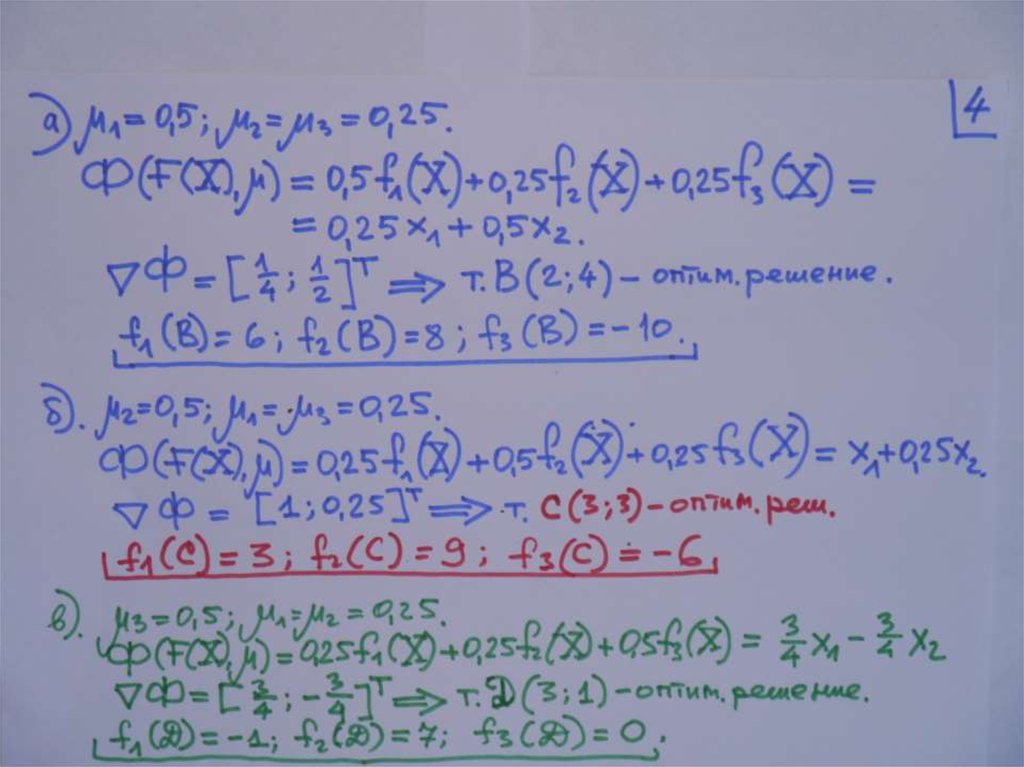 4
а) μ₁ = 0,5; μ₂ = μ₃ = 0,25.
Ф(F(X), μ) = 0,5f₁(X) + 0,25f₂(X) + 0,25f₃(X) =
= 0,25x₁ + 0,5x₂.
∇Ф = [1/4; 1/2]ᵀ ⟹ т. B(2;4) – оптим. решение.
f₁(B) = 6; f₂(B) = 8; f₃(B) = -10.
б). μ₂ = 0,5; μ₁ = μ₃ = 0,25.
Ф(F(X), μ) = 0,25f₁(X) + 0,5f₂(X) + 0,25f₃(X) = x₁ + 0,25x₂.
∇Ф = [1; 0,25]ᵀ ⟹ т. C(3;3) – оптим. реш.
f₁(C) = 3; f₂(C) = 9; f₃(C) = -6
в). μ₃ = 0,5; μ₁ = μ₂ = 0,25.
Ф(F(X), μ) = 0,25f₁(X) + 0,25f₂(X) + 0,5f₃(X) = 3/4 x₁ - 3/4 x₂
∇Ф = [3/4; -3/4]ᵀ ⟹ т. D(3;1) – оптим. решение.
f₁(D) = -1; f₂(D) = 7; f₃(D) = 0.